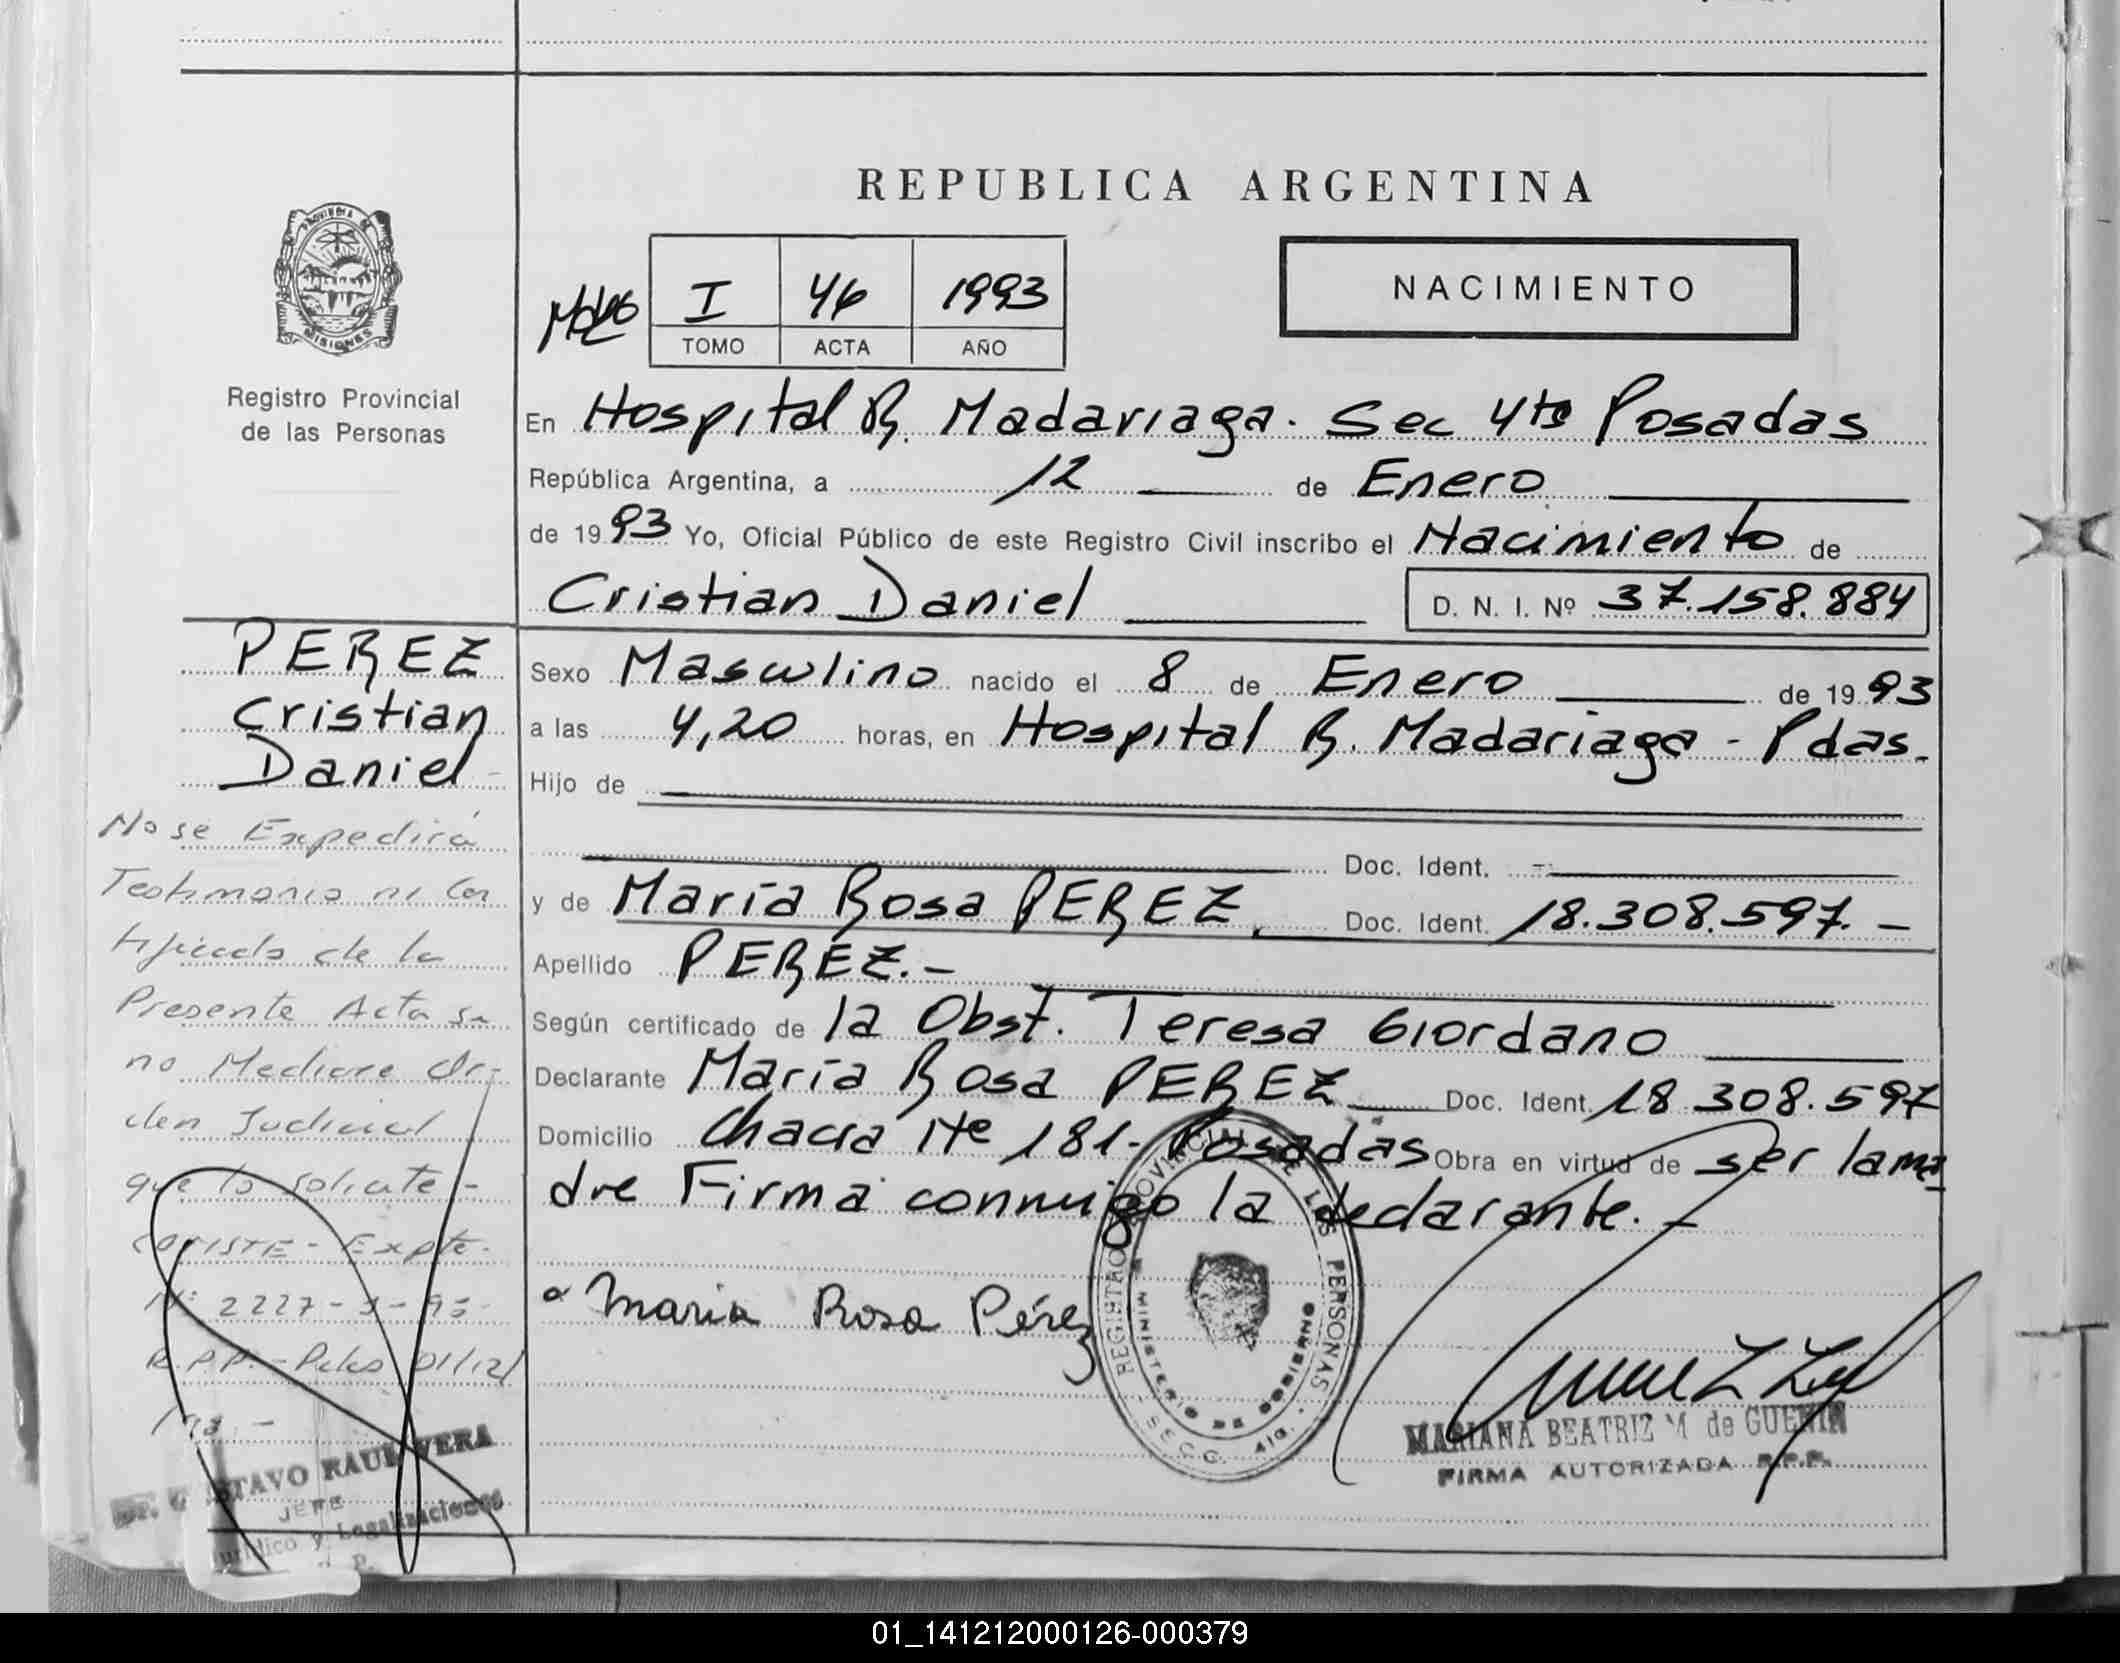 REPUBLICA ARGENTINA
PROVINCIA DE
MISIONES
Registro Provincial
de las Personas
I 46 1993
TOMO ACTA AÑO
NACIMIENTO
En Hospital R. Madariaga. Sec 4ta Posadas
República Argentina, a 12 de Enero
de 1993 Yo, Oficial Público de este Registro Civil inscribo el Nacimiento de
Cristian Daniel D. N. I. Nº 37.158.884
PEREZ
Cristian
Daniel
Sexo Masculino nacido el 8 de Enero de 1993
a las 4,20 horas, en Hospital R. Madariaga - Pdas.
Hijo de
Doc. Ident.
y de María Rosa PEREZ Doc. Ident. 18.308.597.-
Apellido PEREZ.-
Según certificado de la Obst. Teresa Giordano
Declarante María Rosa PEREZ Doc. Ident. 18.308.597
Domicilio Chacra 181- Posadas Obra en virtud de ser la ma
dre Firma conmigo la declarante.-
Maria Rosa Pérez
No se Expedirá
Testimonio ni Cer
tificado de la
Presente Acta si
no Mediare Or-
den Judicial
que lo solicite-
CONSTE- Expte.
Nº 2227-
R.P.P.- Pdas 01/12/
REGISTRO PROVINCIAL DE LAS PERSONAS
MINISTERIO DE GOBIERNO
SECC. 4ta.
MARIANA BEATRIZ M de GUENIN
FIRMA AUTORIZADA R.P.P.
RAUL VERA
JEFE
y Legalizaciones
01_141212000126-000379